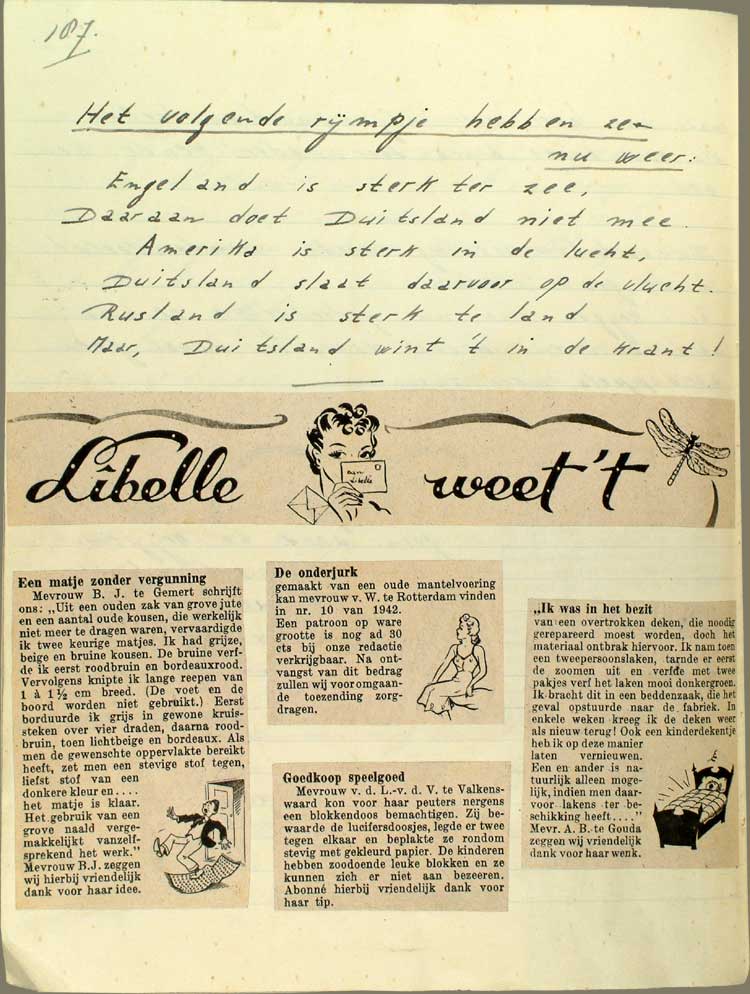 187.
Het volgende rijmpje hebben ze
nu weer:
Engeland is sterk ter zee,
Daaraan doet Duitsland niet mee.
Amerika is sterk in de lucht,
Duitsland slaat daarvoor op de vlucht.
Rusland is sterk te land
Maar, Duitsland wint 't in de krant!
Libelle weet 't
aan
Libelle
Een matje zonder vergunning
Mevrouw B. J. te Gemert schrijft
ons: „Uit een ouden zak van grove jute
en een aantal oude kousen, die werkelijk
niet meer te dragen waren, vervaardigde
ik twee keurige matjes. Ik had grijze,
beige en bruine kousen. De bruine verf-
de ik eerst roodbruin en bordeauxrood.
Vervolgens knipte ik lange reepen van
1 à 1½ cm breed. (De voet en de
boord worden niet gebruikt.) Eerst
borduurde ik grijs in gewone kruis-
steken over vier draden, daarna rood-
bruin, toen lichtbeige en bordeaux. Als
men de gewenschte oppervlakte bereikt
heeft, zet men een stevige stof tegen,
liefst stof van een
donkere kleur en....
het matje is klaar.
Het gebruik van een
grove naald verge-
makkelijkt vanzelf-
sprekend het werk."
Mevrouw B.J. zeggen
wij hierbij vriendelijk
dank voor haar idee.
De onderjurk
gemaakt van een oude mantelvoering
kan mevrouw v. W. te Rotterdam vinden
in nr. 10 van 1942.
Een patroon op ware
grootte is nog ad 30
cts bij onze redactie
verkrijgbaar. Na ont-
vangst van dit bedrag
zullen wij voor omgaan-
de toezending zorg-
dragen.
Goedkoop speelgoed
Mevrouw v. d. L.-v. d. V. te Valkens-
waard kon voor haar peuters nergens
een blokkendoos bemachtigen. Zij be-
waarde de lucifersdoosjes, legde er twee
tegen elkaar en beplakte ze rondom
stevig met gekleurd papier. De kinderen
hebben zoodoende leuke blokken en ze
kunnen zich er niet aan bezeeren.
Abonné hierbij vriendelijk dank voor
haar tip.
„Ik was in het bezit
van een overtrokken deken, die noodig
gerepareerd moest worden, doch het
materiaal ontbrak hiervoor. Ik nam toen
een tweepersoonslaken, tarnde er eerst
de zoomen uit en verfde met twee
pakjes verf het laken mooi donkergroen.
Ik bracht dit in een beddenzaak, die het
geval opstuurde naar de fabriek. In
enkele weken kreeg ik de deken weer
als nieuw terug! Ook een kinderdekentje
heb ik op deze manier
laten vernieuwen.
Een en ander is na-
tuurlijk alleen moge-
lijk, indien men daar-
voor lakens ter be-
schikking heeft...."
Mevr. A. B. te Gouda
zeggen wij vriendelijk
dank voor haar wenk.